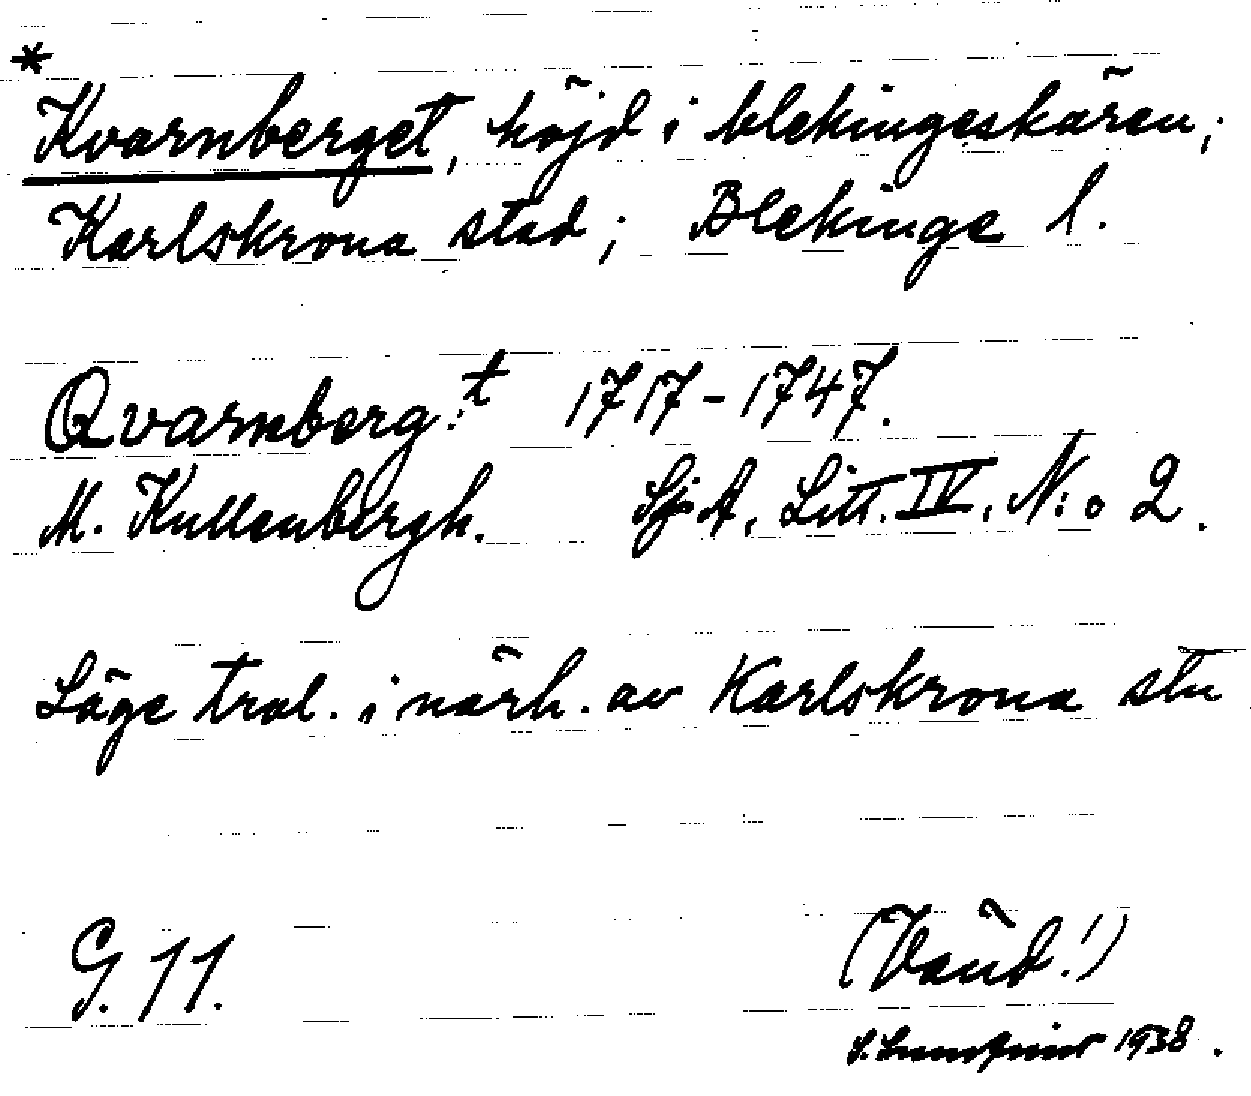 *
Kvarnberget, höjd i blekingeskären;
Karlskrona stad; Blekinge l.
Qvarnberg:t 1717-1747.
M. Kullenbergh. SjA, Litt. IV, N:o 2.
Läge tral. i närh. av Karlskrona stu
G. 11.
(Vänd!)
1938.